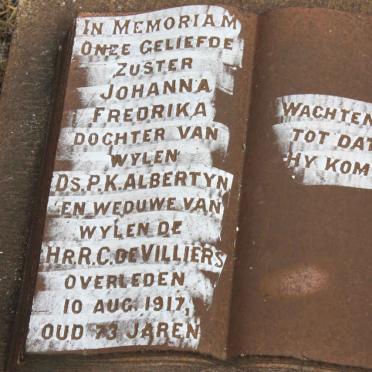 IN MEMORIAM
ONZE GELIEFDE
ZUSTER
JOHANNA
FREDRIKA
DOCHTER VAN
WYLEN
DS. P. K. ALBERTYN
EN WEDUWE VAN
WYLEN DE
HR. R. C. DE VILLIERS
OVERLEDEN
10 AUG. 1917,
OUD 73 JAREN
WACHTEN
TOT DAT
HY KOM